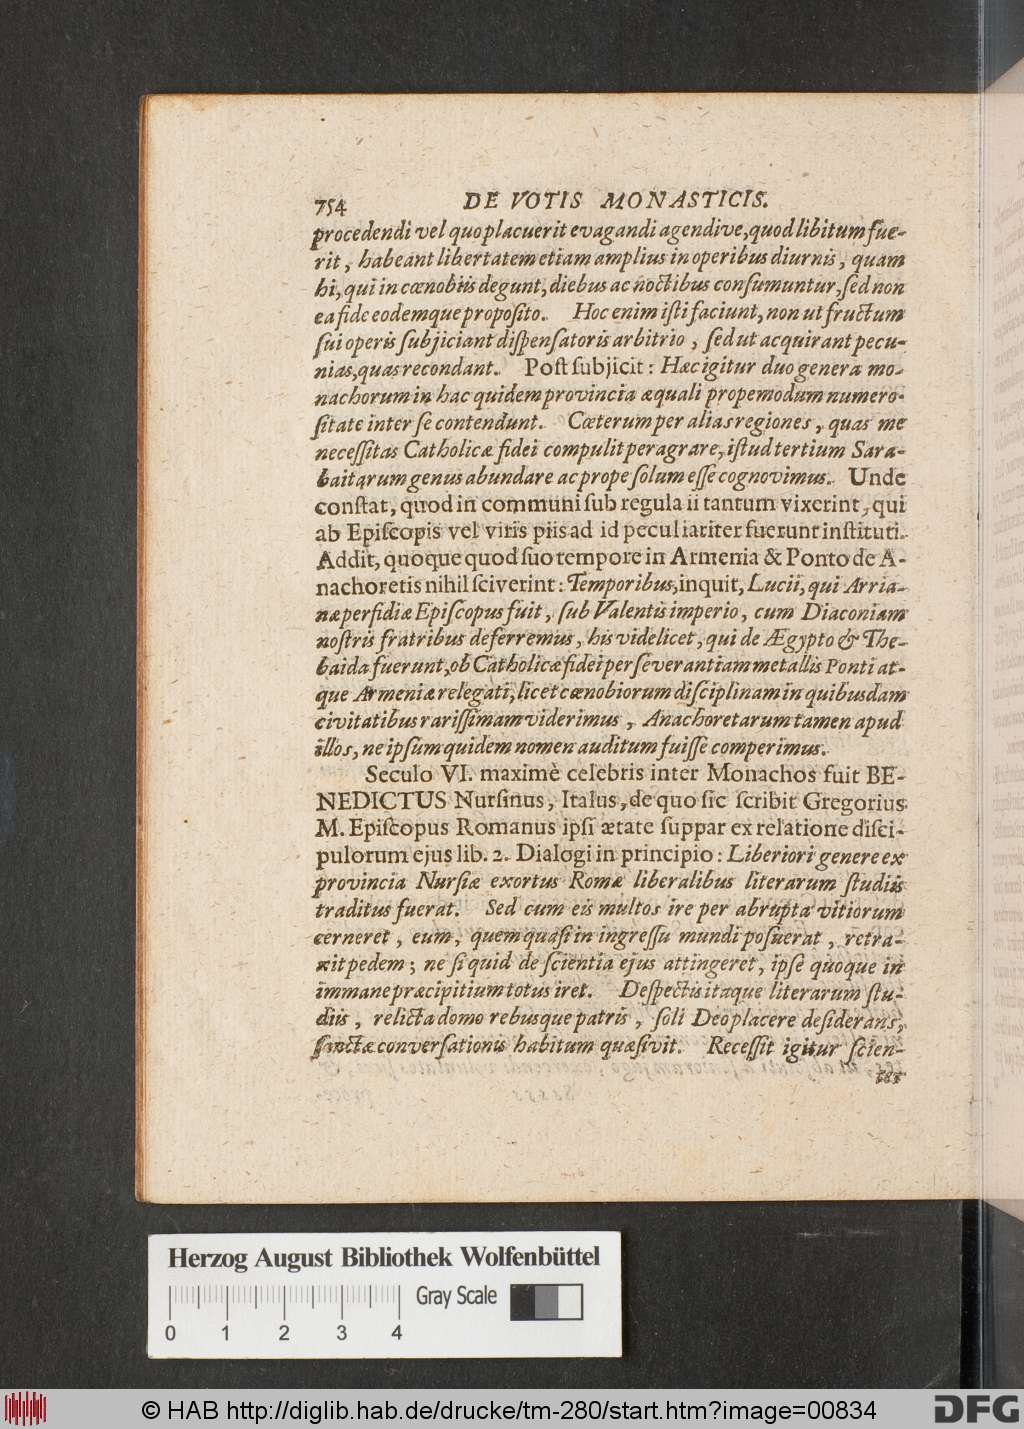 754 DE VOTIS MONASTICIS.
procedendi vel quo placuerit evagandi agendive, quod libitum fue-
rit, habeant libertatem etiam amplius in operibus diurnis, quam
hi, qui in cœnobiis degunt, diebus ac noctibus consumuntur, sed non
ea fide eodemque proposito. Hoc enim isti faciunt, non ut fructum
sui operis subjiciant dispensatoris arbitrio, sed ut acquirant pecu-
nias, quas recondant. Post subjicit: Hæc igitur duo genera mo-
nachorum in hac quidem provincia æquali propemodum numero-
sitate inter se contendunt. Cæterum per alias regiones, quas me
necessitas Catholicæ fidei compulit peragrare, istud tertium Sara-
baitarum genus abundare ac prope solum esse cognovimus. Unde
constat, quod in communi sub regula ii tantum vixerint, qui
ab Episcopis vel viris piis ad id peculiariter fuerunt instituti.
Addit, quoque quod suo tempore in Armenia & Ponto de A-
nachoretis nihil sciverint: Temporibus, inquit, Lucii, qui Arria-
næ perfidiæ Episcopus fuit, sub Valentis imperio, cum Diaconiam
nostris fratribus deferremus, his videlicet, qui de Ægypto & The-
baida fuerunt, ob Catholicæ fidei perseverantiam metallis Ponti at-
que Armeniæ relegati, licet cœnobiorum disciplinam in quibusdam
civitatibus rarissimam viderimus, Anachoretarum tamen apud
illos, ne ipsum quidem nomen auditum fuisse comperimus.
Seculo VI. maximè celebris inter Monachos fuit BE-
NEDICTUS Nursinus, Italus, de quo sic scribit Gregorius
M. Episcopus Romanus ipsi ætate suppar ex relatione disci-
pulorum ejus lib. 2. Dialogi in principio: Liberiori genere ex
provincia Nursiæ exortus Romæ liberalibus literarum studiis
traditus fuerat. Sed cum eis multos ire per abrupta vitiorum
cerneret, eum, quem quasi in ingressu mundi posuerat, retra-
xit pedem; ne si quid de scientia ejus attingeret, ipse quoque in
immane præcipitium totus iret. Despectis itaque literarum stu-
diis, relicta domo rebusque patris, soli Deo placere desiderans,
sanctæ conversationis habitum quæsivit. Recessit igitur scien-
ter
Herzog August Bibliothek Wolfenbüttel
Gray Scale
0 1 2 3 4
© HAB http://diglib.hab.de/drucke/tm-280/start.htm?image=00834
DFG